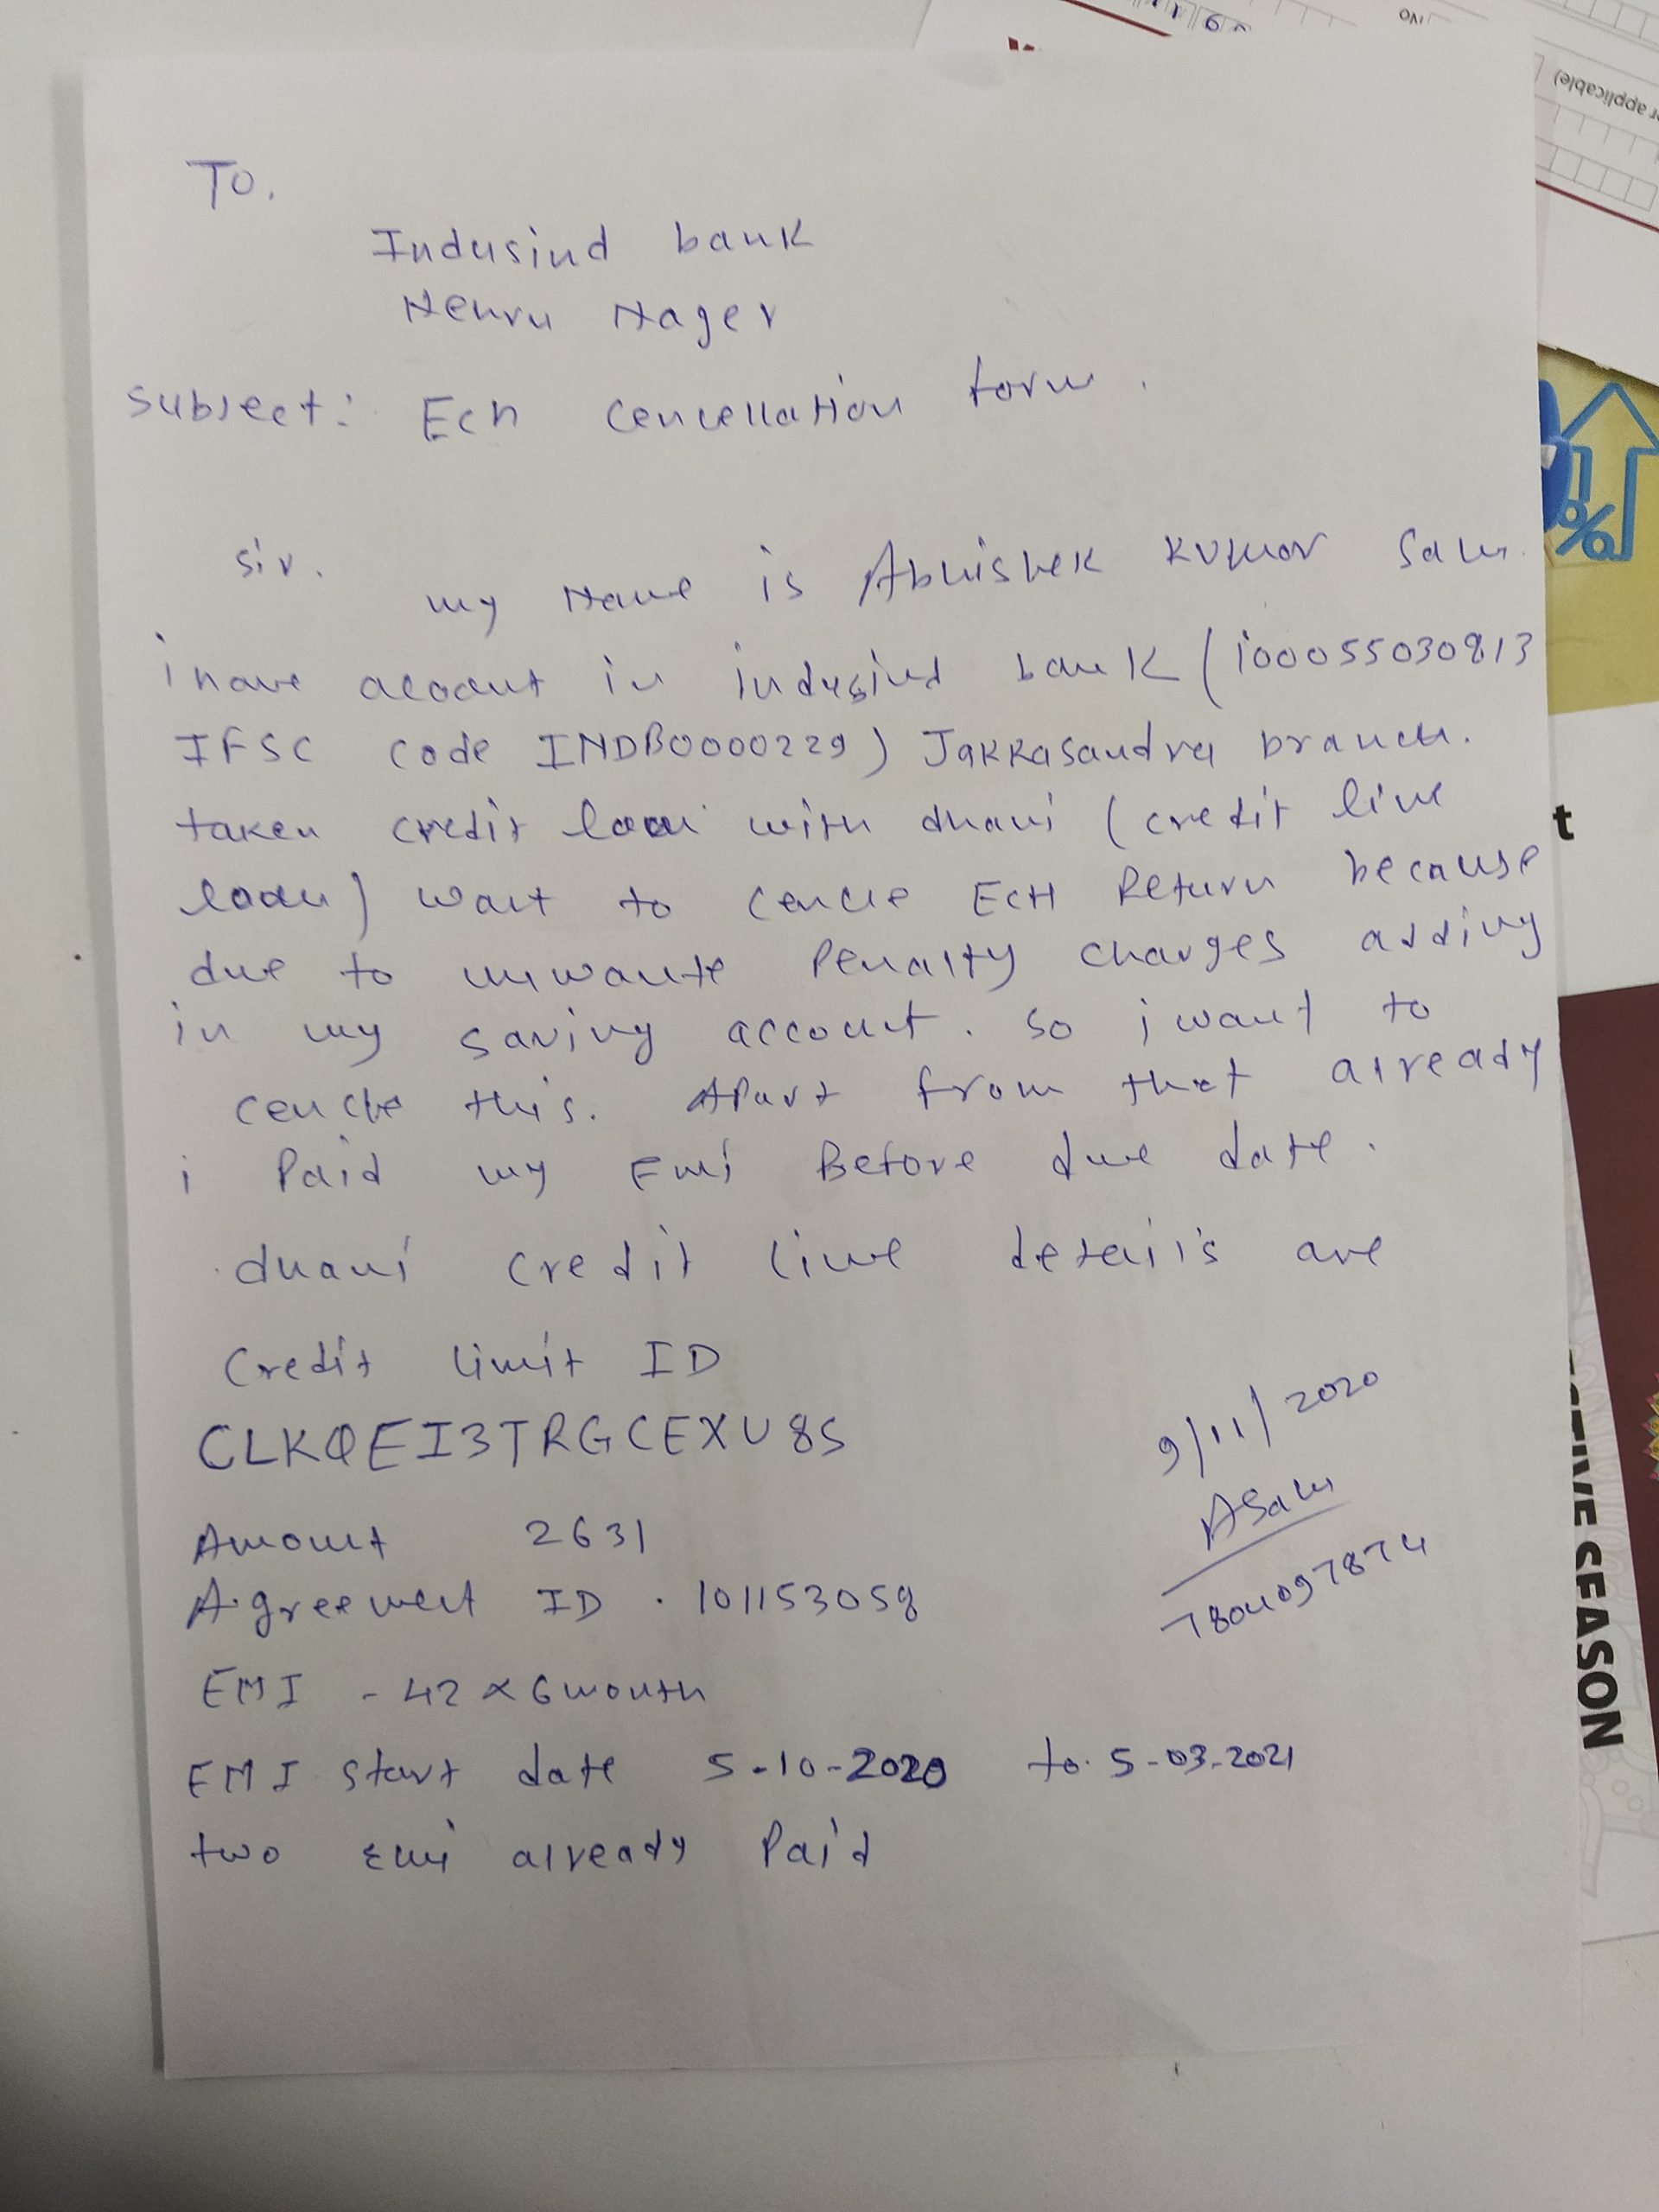 To.
Indusind bank
Nehru Nager
Subject: Ech Cencellation form.
Sir.
my Name is Abhishek Kumar Sahu
i have acoount in indusind bank (100055030813
IFSC Code INDB0000229) Jakkasandra branch.
taken credit loan with dhani (credit line
loan) want to cencle EcH Return because
due to unwante Penalty charges adding
in my saving account. so i want to
cencle this. Apart from that already
i Paid my Emi Before due date.
dhani credit line detail's are
Credit limit ID
CLKQEI3TRGCEXU8S
Amount 2631
Agreement ID . 101153058
EMI - 42 x 6 month
EMI start date 5-10-2020 to 5-03-2021
two Emi already Paid
9/11/2020
ASahu
7804097874
No
r applicable)
%
t
SEASON